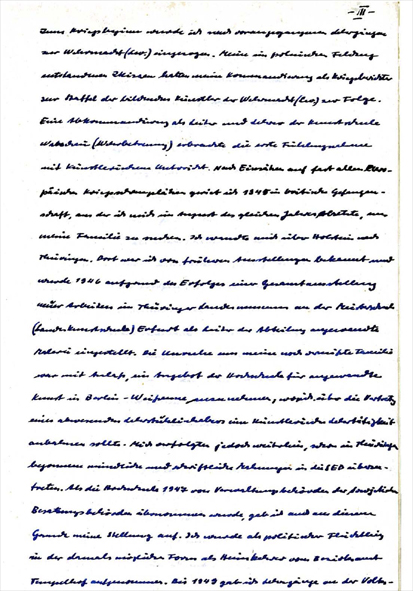 - III -
Zum Kriegsbeginn wurde ich nach vorangegangenen Lehrgängen
zur Wehrmacht (Lw.) eingezogen. Meine im polnischen Feldzug
entstandenen Skizzen hatten meine Kommandierung als Kriegsberichter
zur Staffel der bildenden Künstler der Wehrmacht (Lw) zur Folge.
Eine Abkommandierung als Leiter und Lehrer der Kunstschule
(Wehrbetreuung) erbrachte die erste Fühlungnahme
mit künstlerischem Unterricht. Nach Einsätzen auf fast allen Euro-
päischen Kriegsschauplätzen geriet ich 1945 in britische Gefangen-
schaft, aus der ich mich im August des gleichen Jahres absetzte, um
meine Familie zu suchen. Ich wandte mich über Holstein nach
Thüringen. Dort war ich von früheren Ausstellungen bekannt und
wurde 1946 aufgrund des Erfolges einer Gesamtausstellung
meiner Arbeiten im Thüringer Landesmuseum an der Meisterschule
(Landeskunstschule) Erfurt als Leiter der Abteilung angewandte
Malerei eingestellt. Die Unruhe um meine noch vermißte Familie
war mit Anlaß, ein Angebot der Hochschule für angewandte
Kunst in Berlin - Weißensee anzunehmen, wo ich über die Vertretung
eines abwesenden Lehrstuhlinhabers eine künstlerische Lehrtätigkeit
anbahnen sollte. Mich erfolgten jedoch weiterhin, schon in Thüringen
begonnene mündliche und schriftliche Mahnungen in die SED überzu-
treten. Als die Hochschule 1947 von Verwaltungsbehörden der Sowjetischen
Besatzungsbehörden übernommen wurde, gab ich auch aus diesem
Grunde meine Stellung auf. Ich wurde als politischer Flüchtling
in der damals möglichen Form als Heimkehrer vom Bezirksamt
Tempelhof aufgenommen. Bis 1949 gab ich Lehrgänge an der Volks-